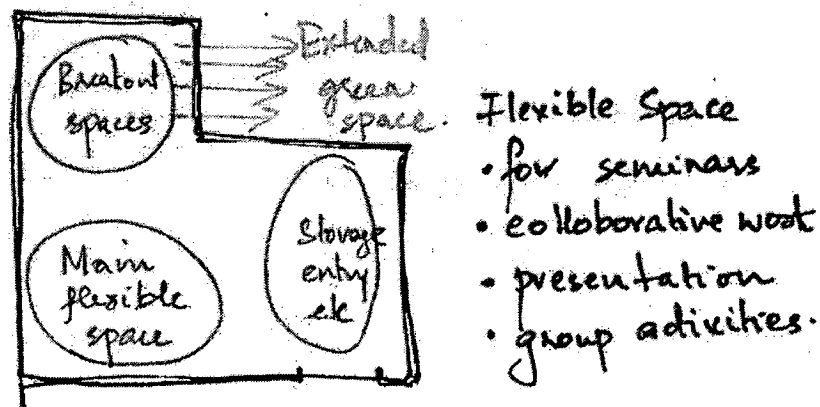 Breakout
spaces
Extended
green
space.
Main
flexible
space
Storage
entry
etc
Flexible Space
• for seminars
• colloborative work
• presentation
• group activities.